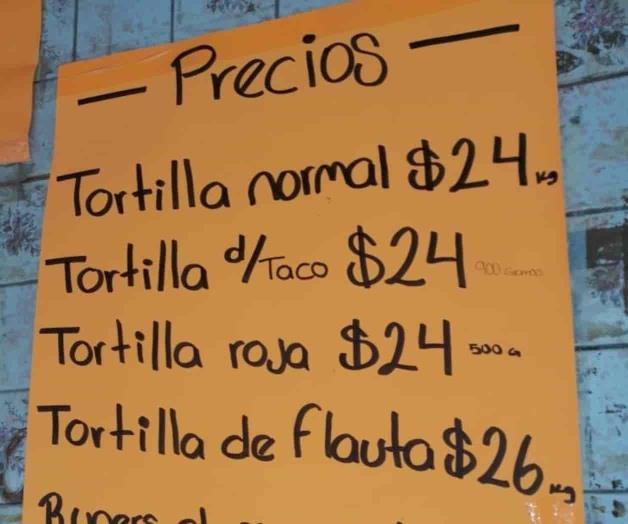 — Precios —
Tortilla normal $24 kg
Tortilla d/Taco $24 900 Gramos
Tortilla roja $24 500 G
Tortilla de flauta $26 kg